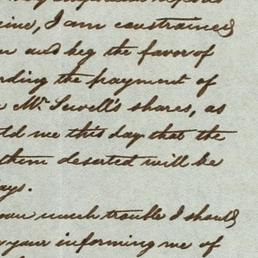 ine, I am constrained
and beg the favor of
rding the payment of
Mr Sewell's shares, as
ld me this day that the
them deserted will be
ays.
you much trouble I should
your informing me of